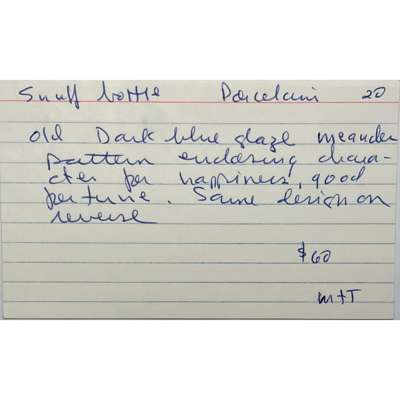 Snuff bottle Porcelain 20
old Dark blue glaze meander
pattern enclosing charac-
cter for happiness, good
fortune. Same design on
reverse
$60
M+T